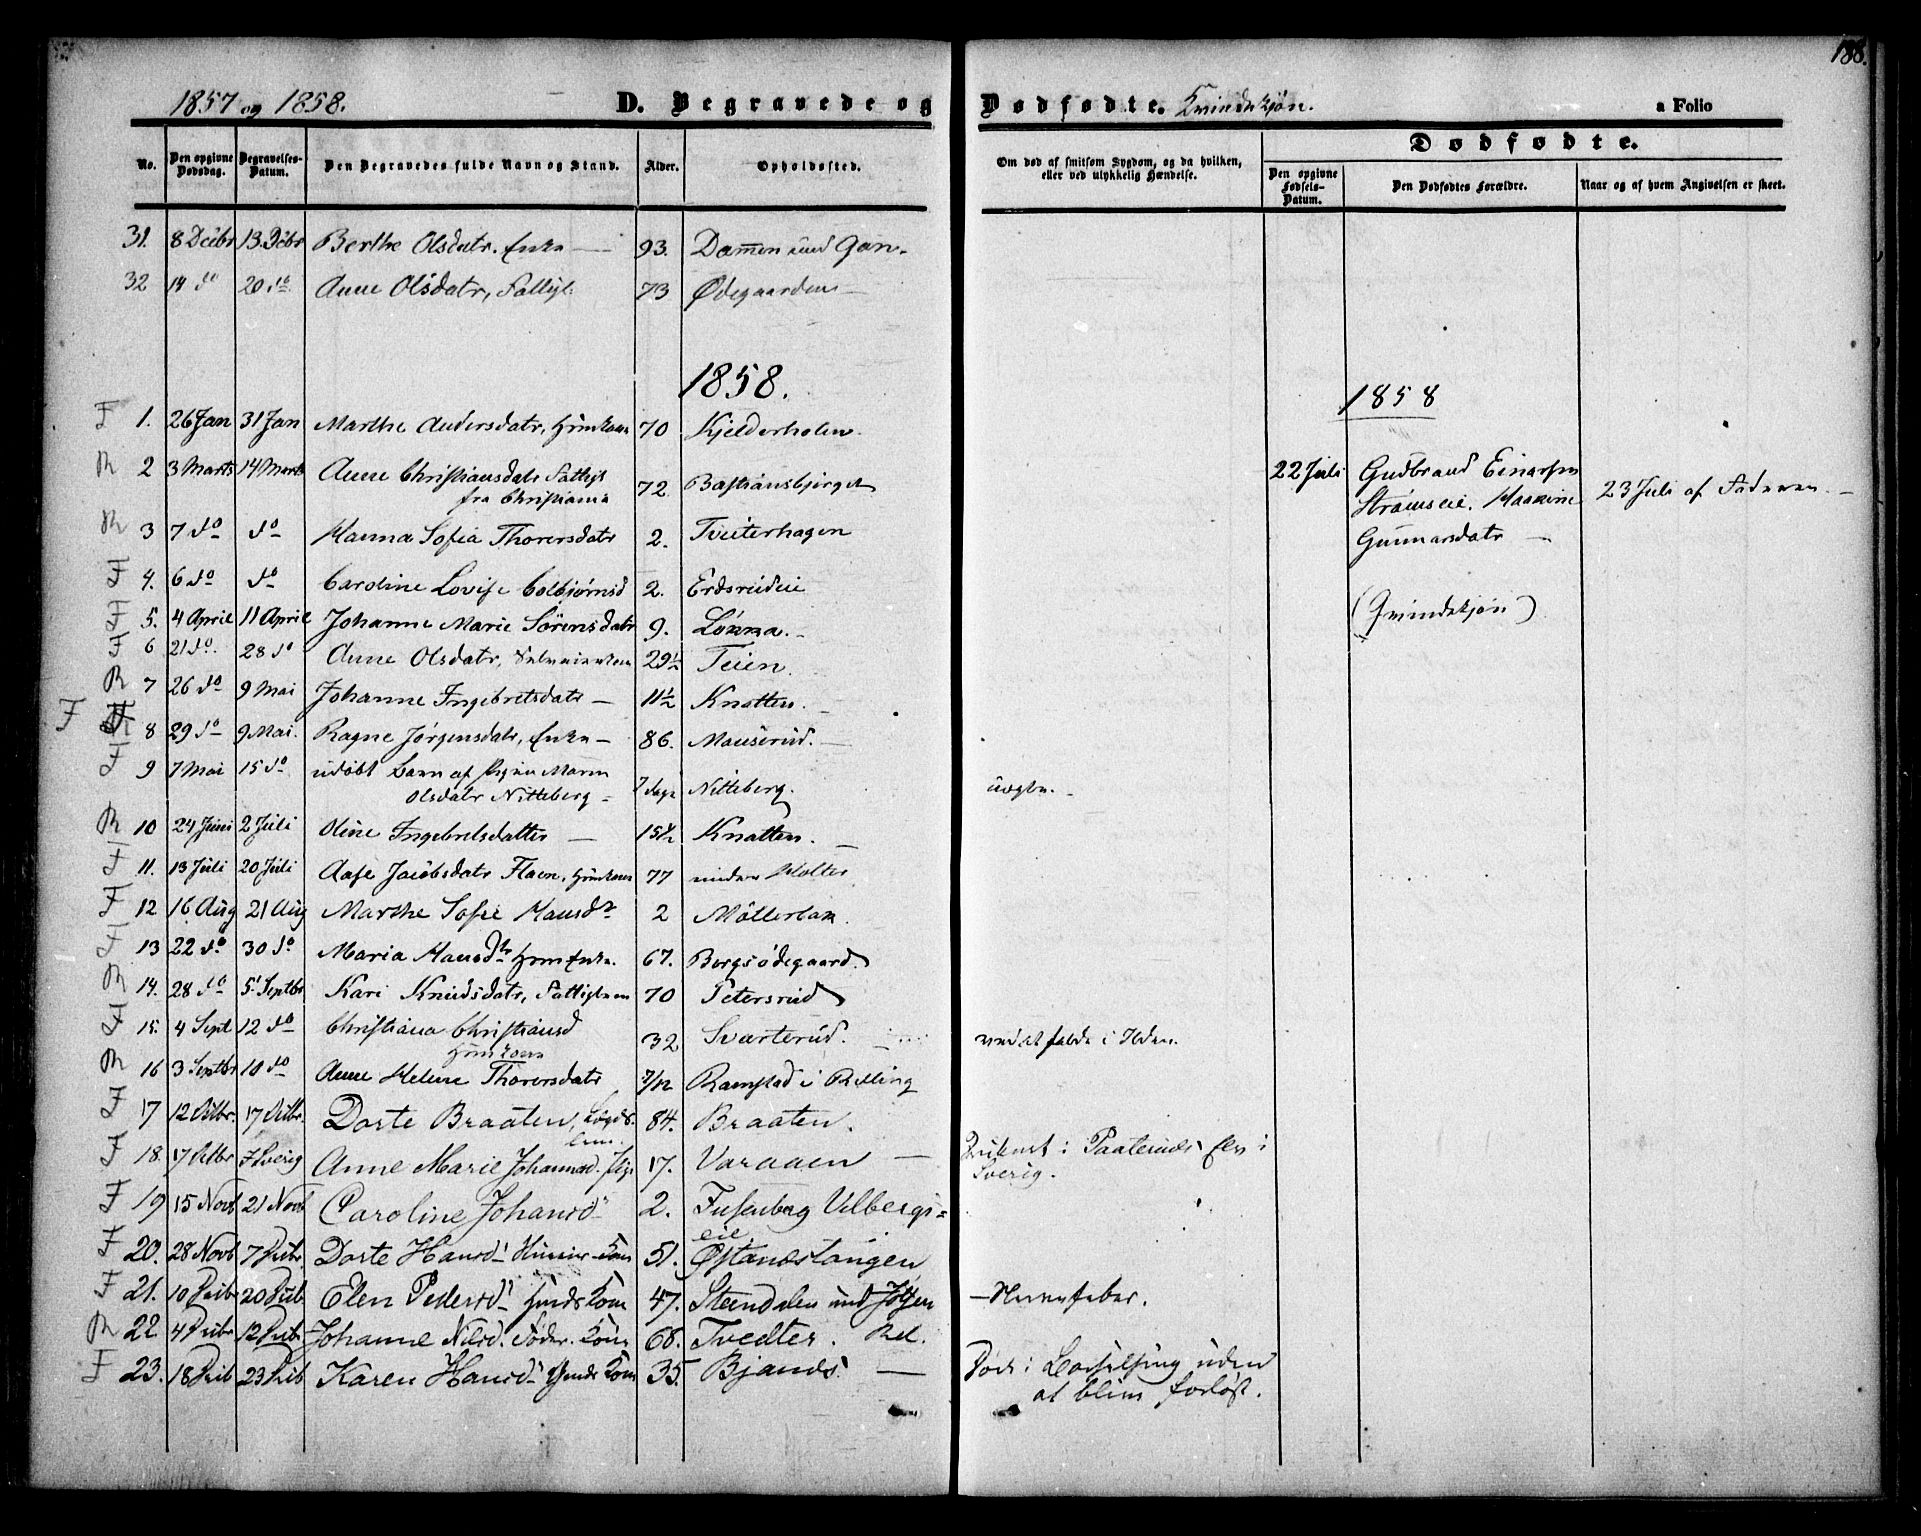 188.
1857 og 1858. D. Begravede og Dødfødte. Kvindekjøn. a Folio
No. Den opgivne Dødsdag. Begravelses-Datum. Den Begravedes fulde Navn og Stand. Alder. Opholdssted. Om død af smitsom Sygdom, og da hvilken, eller ved ulykkelig Hændelse. Dødfødte.
Den opgivne Fødsels-Datum. Den Dødfødtes Forældre. Naar og af hvem Angivelsen er skeet.
31. 8 Decbr 13. Dcbr Berthe Olsdatr. Enke 93. Dammen und
32 14 do 20 do Anne Olsdatr, Fattigl. 73 Ødegaarden
1858.
1858
F 1. 26 Jan 31 Jan Marthe Andersdatr, Huuskone 70 Kjelderholen
R 2 3 Marts 14 Marts Anne Christiansdatr Fattigl
fra Christiania 72. Bastiansbjerget
22 Juli Gudbrand Einarsen
Strømseie. Maaren
Gunnarsdatr
23 Juli af Faderen.
R 3 7 do do Hanna Sofia Thorersdatr 2. Tveiterhagen
F 4. 6 do do Caroline Lovise Colbjørnsd 2. Erdsrudeie
(Qvindekjøn)
F 5. 4 April 11 April Johanne Marie Sørensdatr 9. Lønna.
F 6 21 do 28 do Anne Olsdatr, 29½ Teien.
R 7 26 do 9 Mai Johanne Ingebretsdatr 11½ Knatten.
F 8 29 do 9 Mai. Ragne Jørgensdatr, Enke 86. Mauserud.
F 9 7 Mai 15 do udøbt Barn af Maren
Olsdatr Nitteberg 7 dage Nitteberg. uægte.
R 10 24 Juni 2 Juli Oline Ingebretsdatter 15½ Knatten.
F 11. 13 Juli 20 Juli Aase Jacobsdatr Flaen, Huuskone 77 under Holter
F 12 16 Aug 21 Aug Marthe Sofie Hansdr 2 Møllerbak
F 13 22 do 30 do Maria Hansdtr Huusenke. 67. Borgsødegaard.
R 14. 28 do 5 Septbr Kari Knudsdatr, Fattiglem 70 Petersrud
F 15. 4 Sept 12 do Christiana Christiansd
Huuskone 32 Svarterud. ved at falde i Ilden.
R 16 3 Septbr 10 do Anne Helene Thorersdatr 7/12 Ramstad i Relling
F 17 12 Octbr. 17 Octbr. Dorte Braaten, Lægds-
lem. 84. Braaten.
F 18. 17 Octbr i Sverig Anne Marie Johannsd. Pige 17. Varaaen Druknet i Paaleruds Elv i
Sverig.
F 19 15 Novb 21 Novb Caroline Johansd 2. Fusenberg Velbergs-
eie
F 20. 28 Novb 7 Decbr. Dorte Hansd Kone 51. Østandslangen
F 21. 10 Decbr 20 Decb Elen Pedersd Kone 47. Steendalen und Jølsen Nervefeber.
R 22 4 Decbr 12 Decbr Johanne Nilsd. Kone 68. Tvedter. Rel.
F 23. 18 Decb 23 Decb Karen Hansd Kone 35. Bjanes Død i Barselseng uden
at blive forløst.